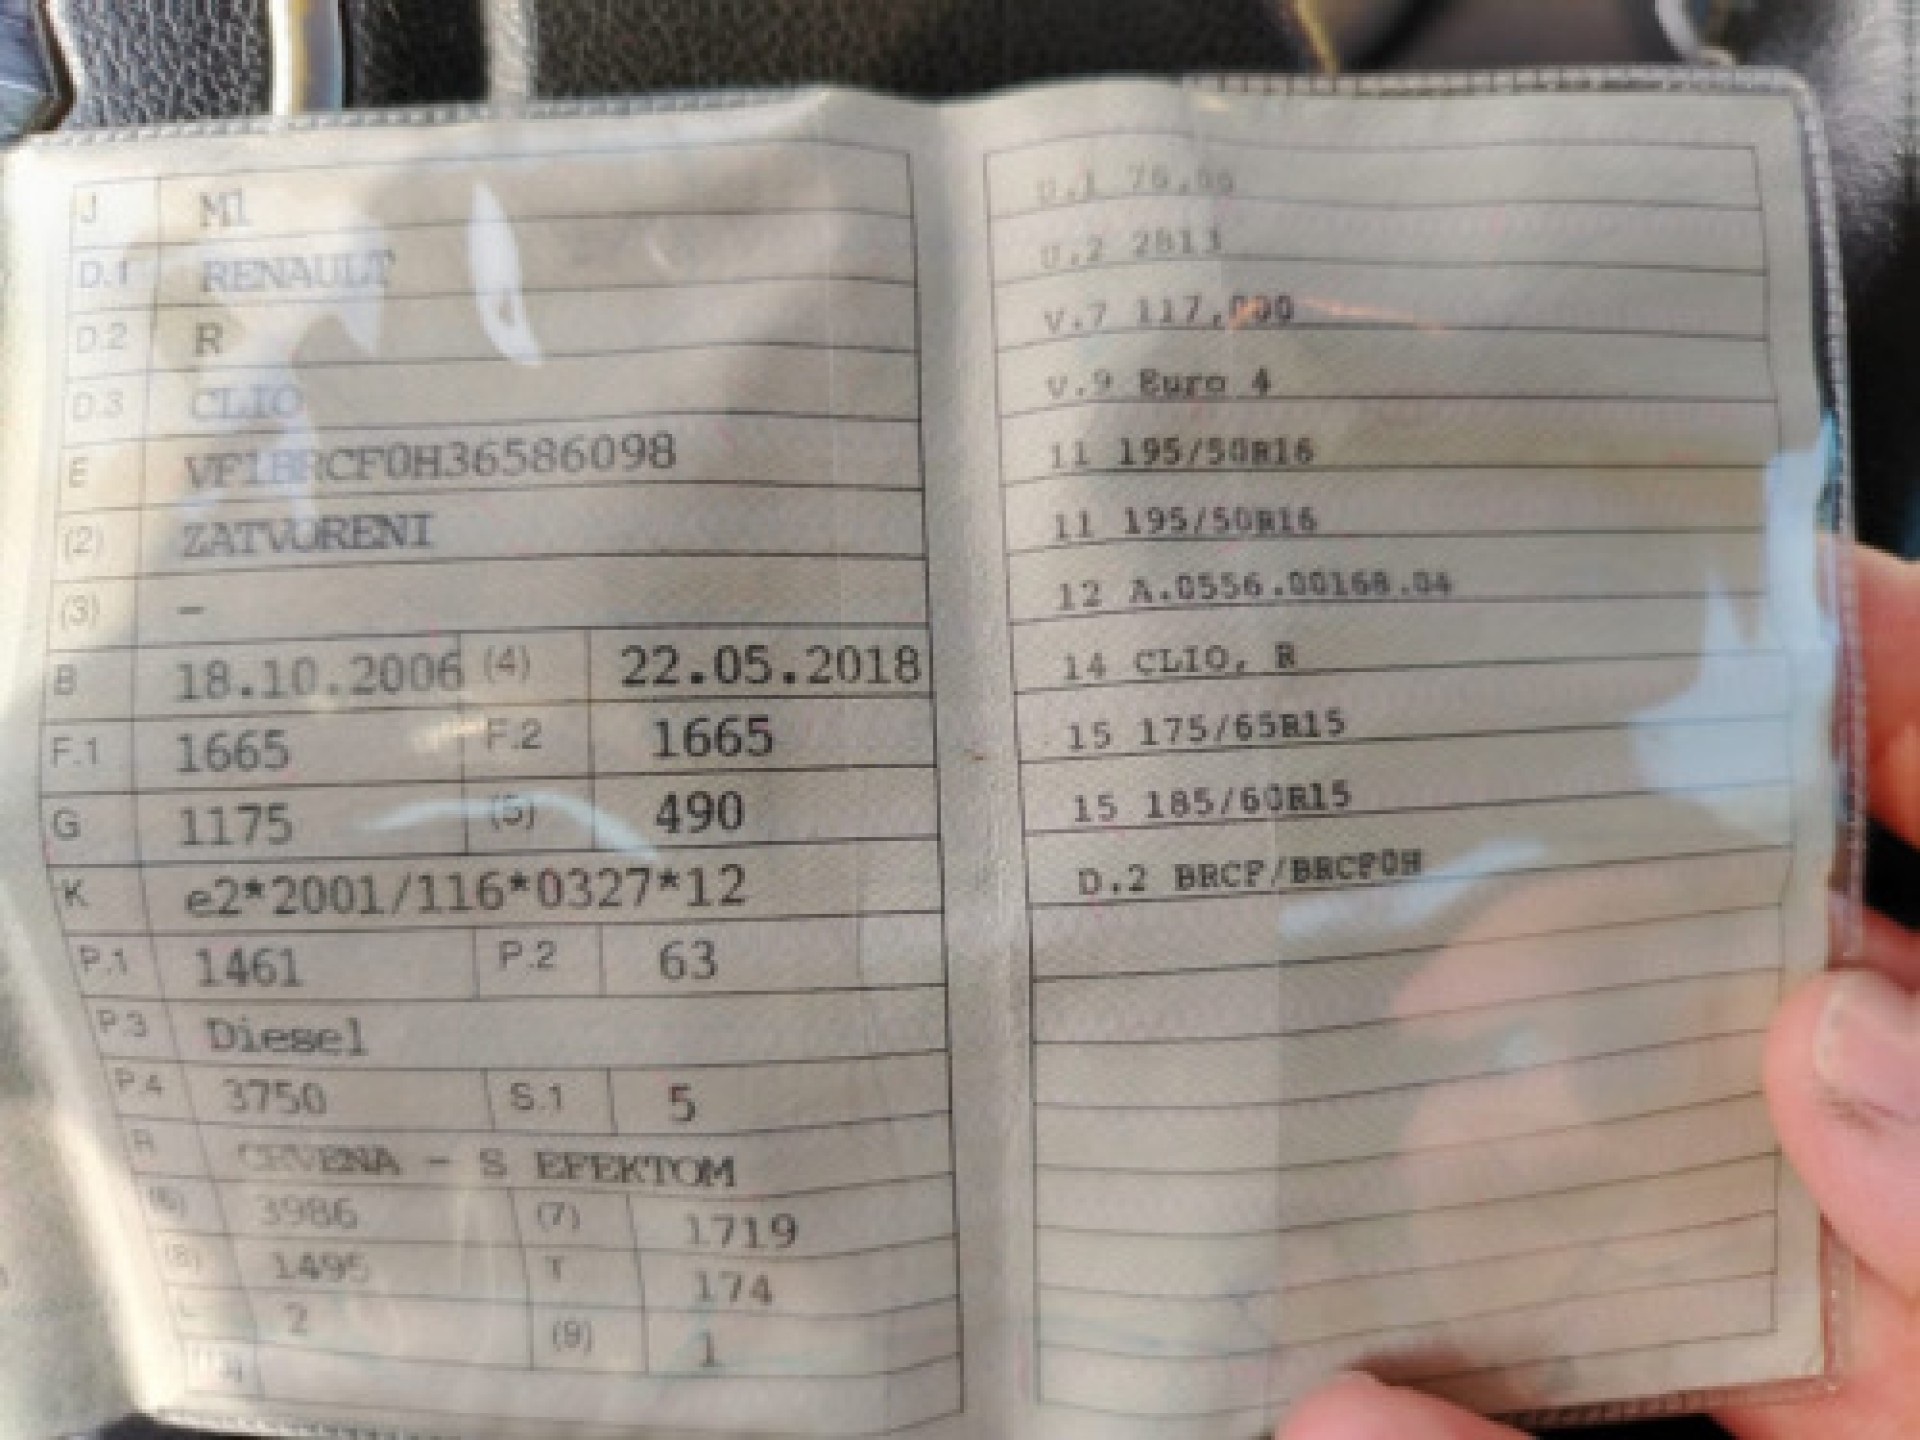 J M1
D.1 RENAULT
D.2 R
D.3 CLIO
E VF1BRCF0H36586098
(2) ZATVORENI
(3) -
B 18.10.2006 (4) 22.05.2018
F.1 1665 F.2 1665
G 1175 (5) 490
K e2*2001/116*0327*12
P.1 1461 P.2 63
P.3 Diesel
P.4 3750 S.1 5
R CRVENA - S EFEKTOM
(6) 3986 (7) 1719
(8) 1495 T 174
L 2 (9) 1
U.1
U.2 2813
V.7 117,000
V.9 Euro 4
11 195/50R16
11 195/50R16
12 A.0556.00168.04
14 CLIO, R
15 175/65R15
15 185/60R15
D.2 BRCF/BRCF0H